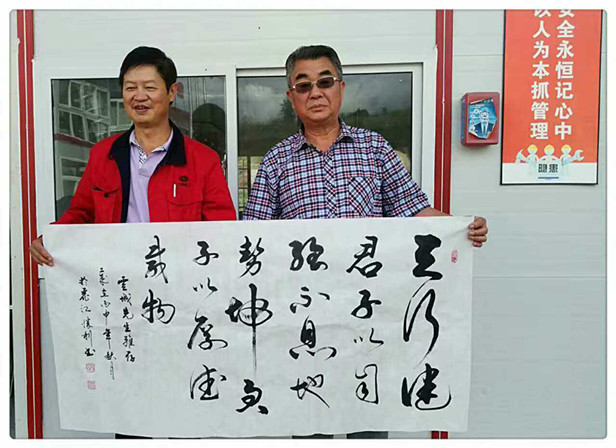 安全永恒记心中
以人为本抓管理
天行健
君子以自
强不息地
勢坤君
子以厚德
載物
雲城先生雅存
丙申年秋月
於麗江